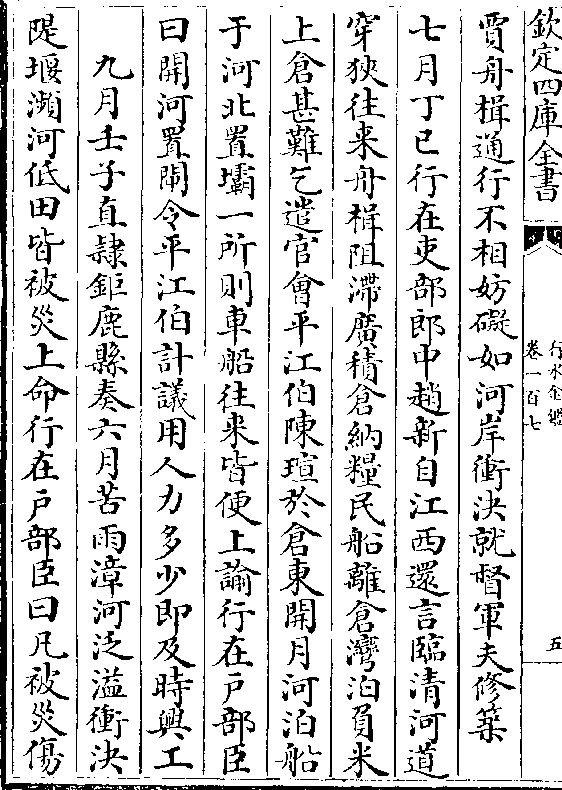 欽定四庫全書
行水金鑑
卷一百七
五
賈舟楫通行不相妨礙如河岸衝決就督軍夫修築
七月丁巳行在吏部郎中趙新自江西還言臨清河道
穿狹往来舟楫阻滯廣積倉納糧民船離倉灣泊負米
上倉甚難乞遣官會平江伯陳瑄於倉東開月河泊船
于河北置壩一所則車船往来皆便上諭行在戸部臣
曰開河置閘令平江伯計議用人力多少即及時興工
九月壬子直隷鉅鹿縣奏六月苦雨漳河泛溢衝決
隄堰瀕河低田皆被災上命行在戸部臣曰凡被災傷